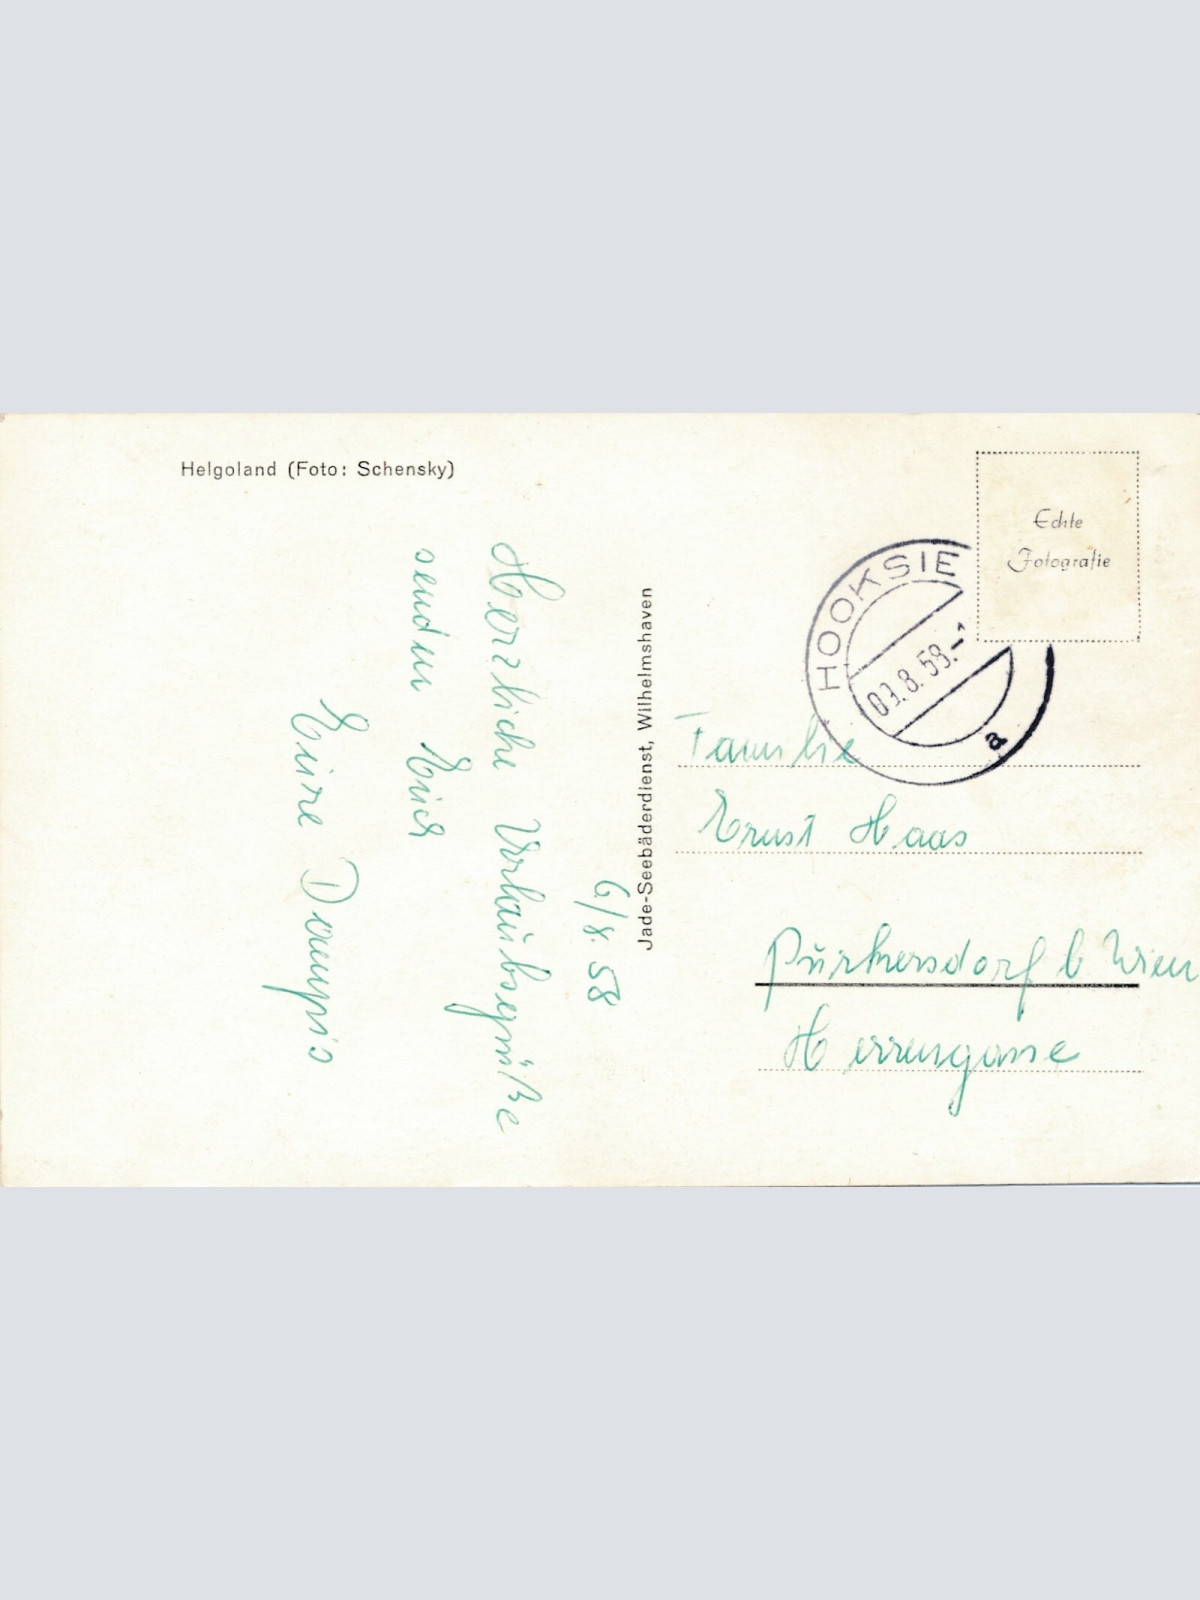 Helgoland (Foto: Schensky)
6/8.58
Herzliche Urlaubsgrüße
senden Euch
Eure
Jade-Seebäderdienst, Wilhelmshaven
Echte
Fotografie
HOOKSIE
.8.58.-
a
Familie
Ernst Haas
Purkersdorf b Wien
Herrengasse